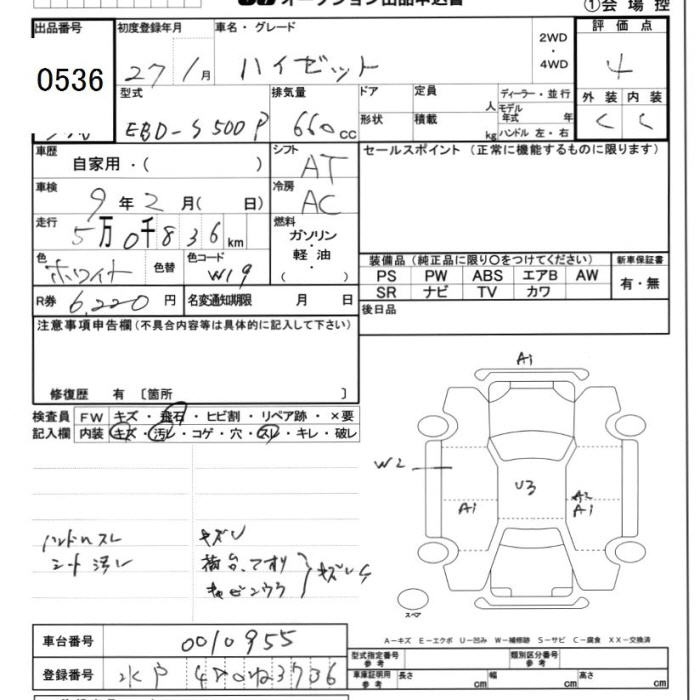 オークション出品申込書
①会場控
出品番号 0536
初度登録年月 27年 1月
車名・グレード ハイゼット
2WD・4WD
評価点 4
型式 EBD-S500P
排気量 660cc
ドア 形状
定員 人
積載 kg
ディーラー・並行
モデル年式 年
ハンドル 左・右
外装 C 内装 C
車歴 自家用・( )
シフト AT
セールスポイント(正常に機能するものに限ります)
車検 9年2月( 日)
冷房 AC
走行 5万0千836km
燃料 ガソリン・軽油・( )
色 ホワイト 色替 色コード W19
装備品(純正品に限り○をつけてください) 新車保証書
PS PW ABS エアB AW 有・無
SR ナビ TV カワ
R券 6,220円 名変通知期限 月 日
後日品
注意事項申告欄(不具合内容等は具体的に記入して下さい)
修復歴 有 〔箇所 〕
検査員記入欄 FW キズ・飛石・ヒビ割・リペア跡・×要
内装 キズ・汚レ・コゲ・穴・スレ・キレ・破レ
A1
W2
U3
A2
A1 A1
ハンドルスレ キズU
シート汚レ 荷台、てすり
キズレ
スペア
A-キズ E-エクボ U-凹み W-補修跡 S-サビ C-腐食 XX-交換済
車台番号 0010955
型式指定番号 参考 類別区分番号 参考
登録番号 水戸 480ね3736
車庫証明用 参考 長さ cm 幅 cm 高さ cm